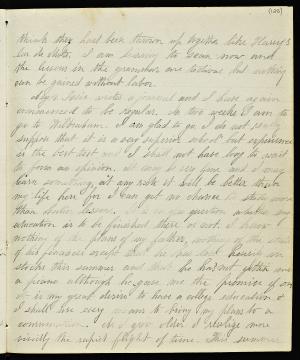 (125)
think they had been thrown up together like Harry's
I am learning to scan now and
the lessons in the grammar are tedious but nothing
can be gained without labor.
wrote a journal and I have again
commenced to be regular. In two weeks I am to
go to I am glad to go. I do not really
suppose that it is a very superior school but experience
is the best test and I shall not have long to wait
to form an opinion. It may be very fine and I may
learn something, at any rate it will be better than
my life here for I can get no chance to study more
than Latin lessons. It is question whether my
education is to be finished there or not. I know
nothing of the plans of my father, nothing of the state
of his finances except that he has lost in
stocks this summer and that he has not gotten me
a piano although he gave me the promise of one.
It is my great desire to have a college education &
I shall use every means to bring my plans to a
consummation. As I grow older I realize more
vividly the rapid flight of time. This summer